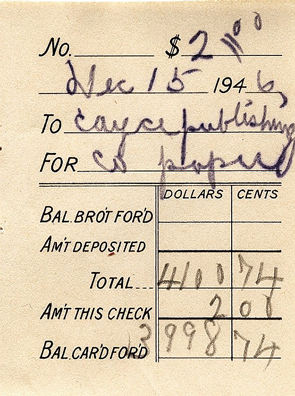 No. $ 2 00
Dec 15 194 6,
To cayce publishing
FOR co
DOLLARS CENTS
BAL. BRO'T FOR'D
AM'T DEPOSITED
TOTAL... 4100 74
AM'T THIS CHECK 2 00
BAL. CAR'D FOR'D 3998 74